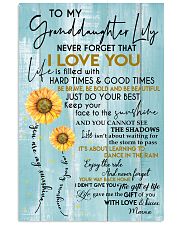 TO MY
Granddaughter Lily
NEVER FORGET THAT
I LOVE YOU
Life is filled with
HARD TIMES & GOOD TIMES
BE BRAVE, BE BOLD AND BE BEAUTIFUL
JUST DO YOUR BEST
Keep your
face to the sunshine
AND YOU CANNOT SEE
THE SHADOWS
Life isn't about waiting for
the storm to pass
IT'S ABOUT LEARNING TO
DANCE IN THE RAIN
Enjoy the ride
And never forget
YOUR WAY BACK HOME
I DIDN'T GIVE YOU The gift of life
Life gave me the GIFT OF you
WITH LOVE &
You are my sunshine